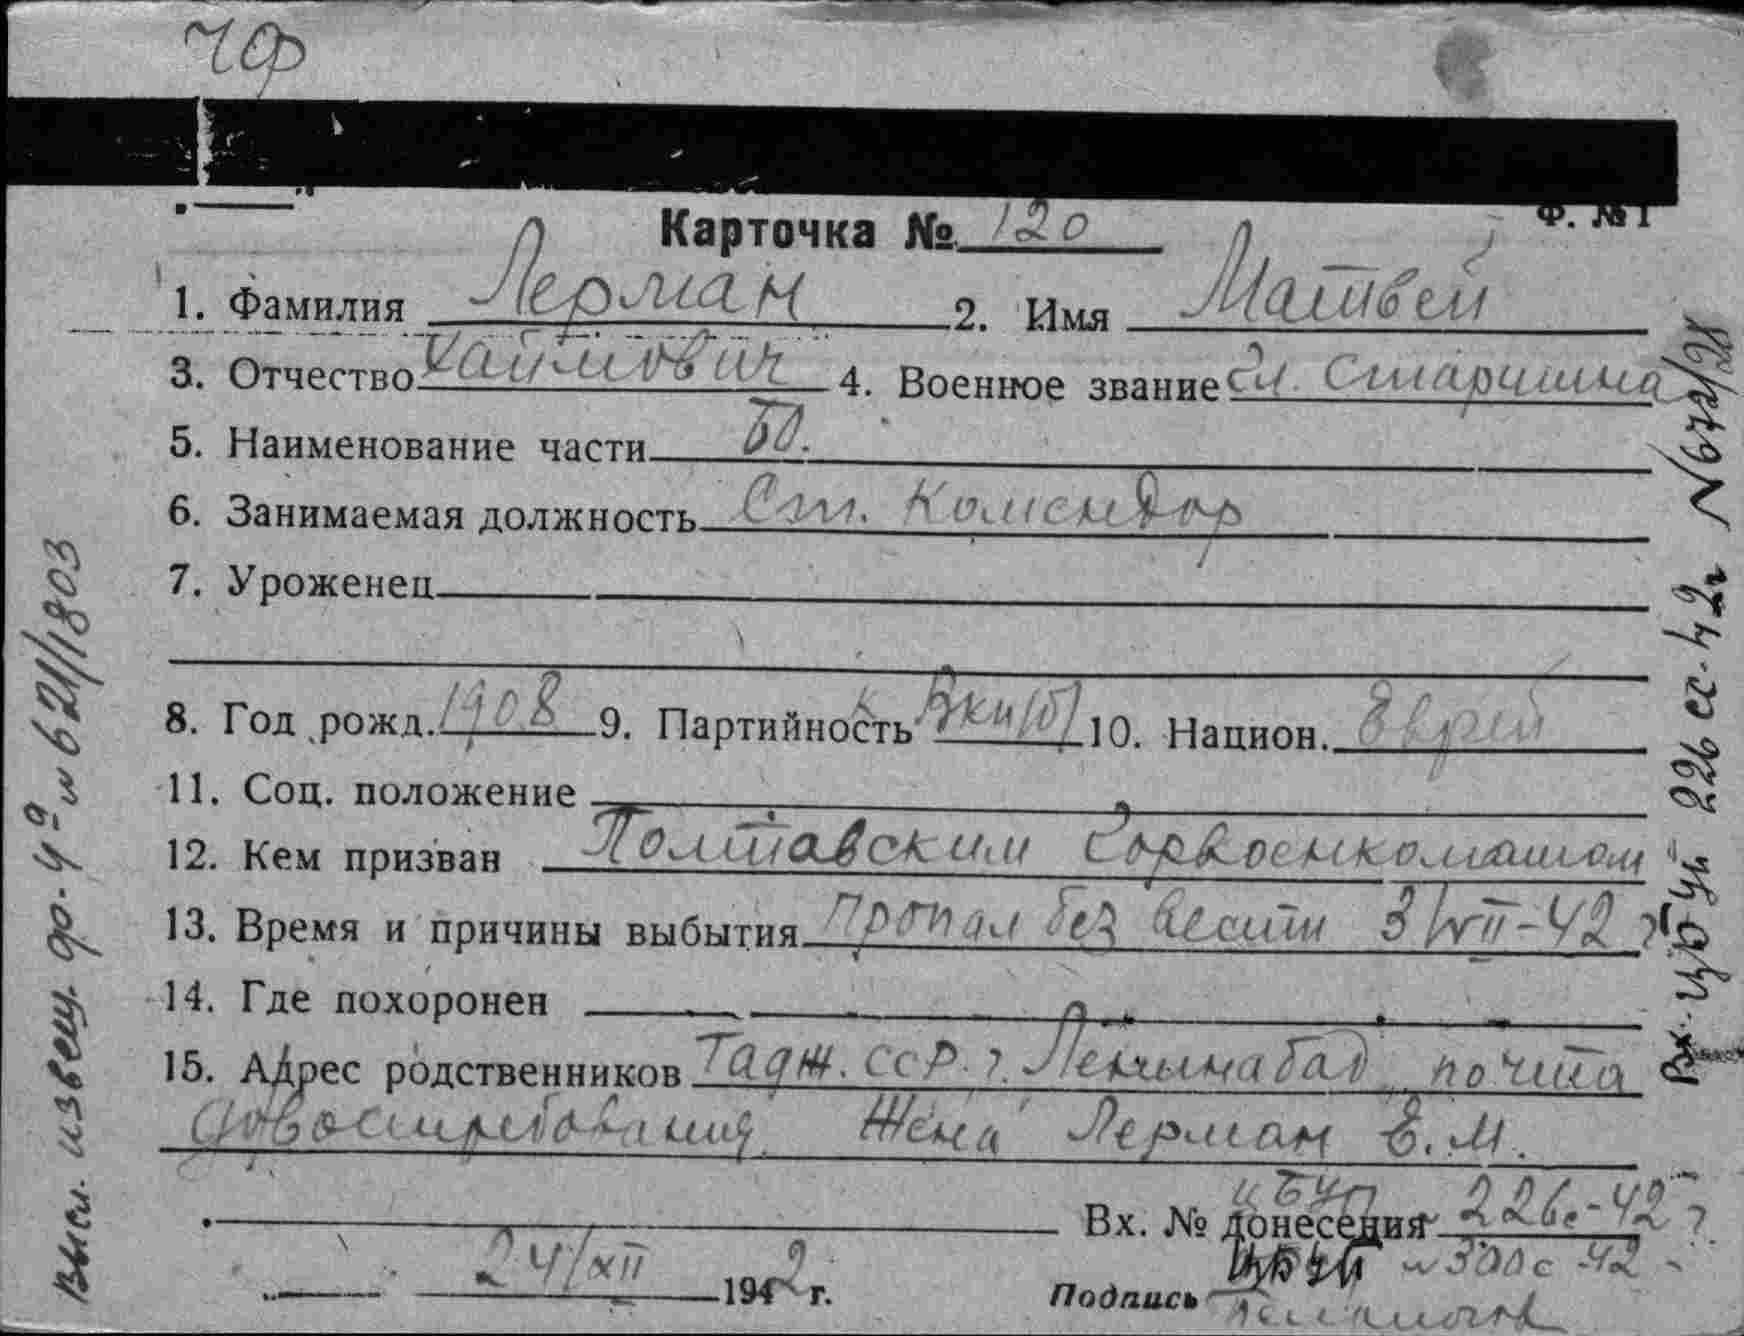 ЧФ
Карточка № 120
Ф. № 1
1. Фамилия Лерман 2. Имя Матвей
3. Отчество Хаймович 4. Военное звание Гл. Старшина
5. Наименование части БО.
6. Занимаемая должность Ст. Комендор
7. Уроженец
8. Год рожд. 1908 9. Партийность к ВКП(б) 10. Национ. Еврей
11. Соц. положение
12. Кем призван Полтавским Горвоенкоматом
13. Время и причины выбытия Пропал без вести 3/VII-42 г
14. Где похоронен
15. Адрес родственников Тадж. ССР. г. Ленинабад, почта
довостребования. Жена Лерман Е. М.
Вх. № донесения 226с-42 г
24/XII 1942 г. № 300с-42
Подпись
Выс. извещ. ф. 4 а № 621/1803
226 сс-42г